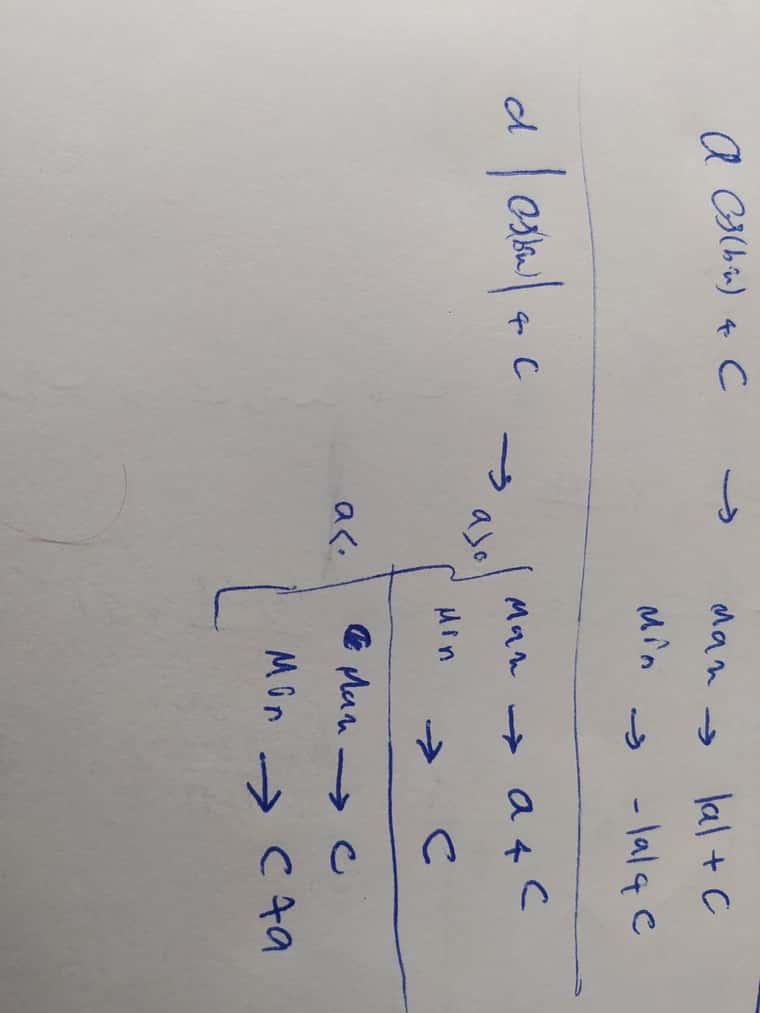 a cos(bx) + c → Max → |a| + c
Min → -|a| + c
a |cos(bx)| + c → a>0 Max → a + c
Min → c
a<0 Max → c
Min → c + a